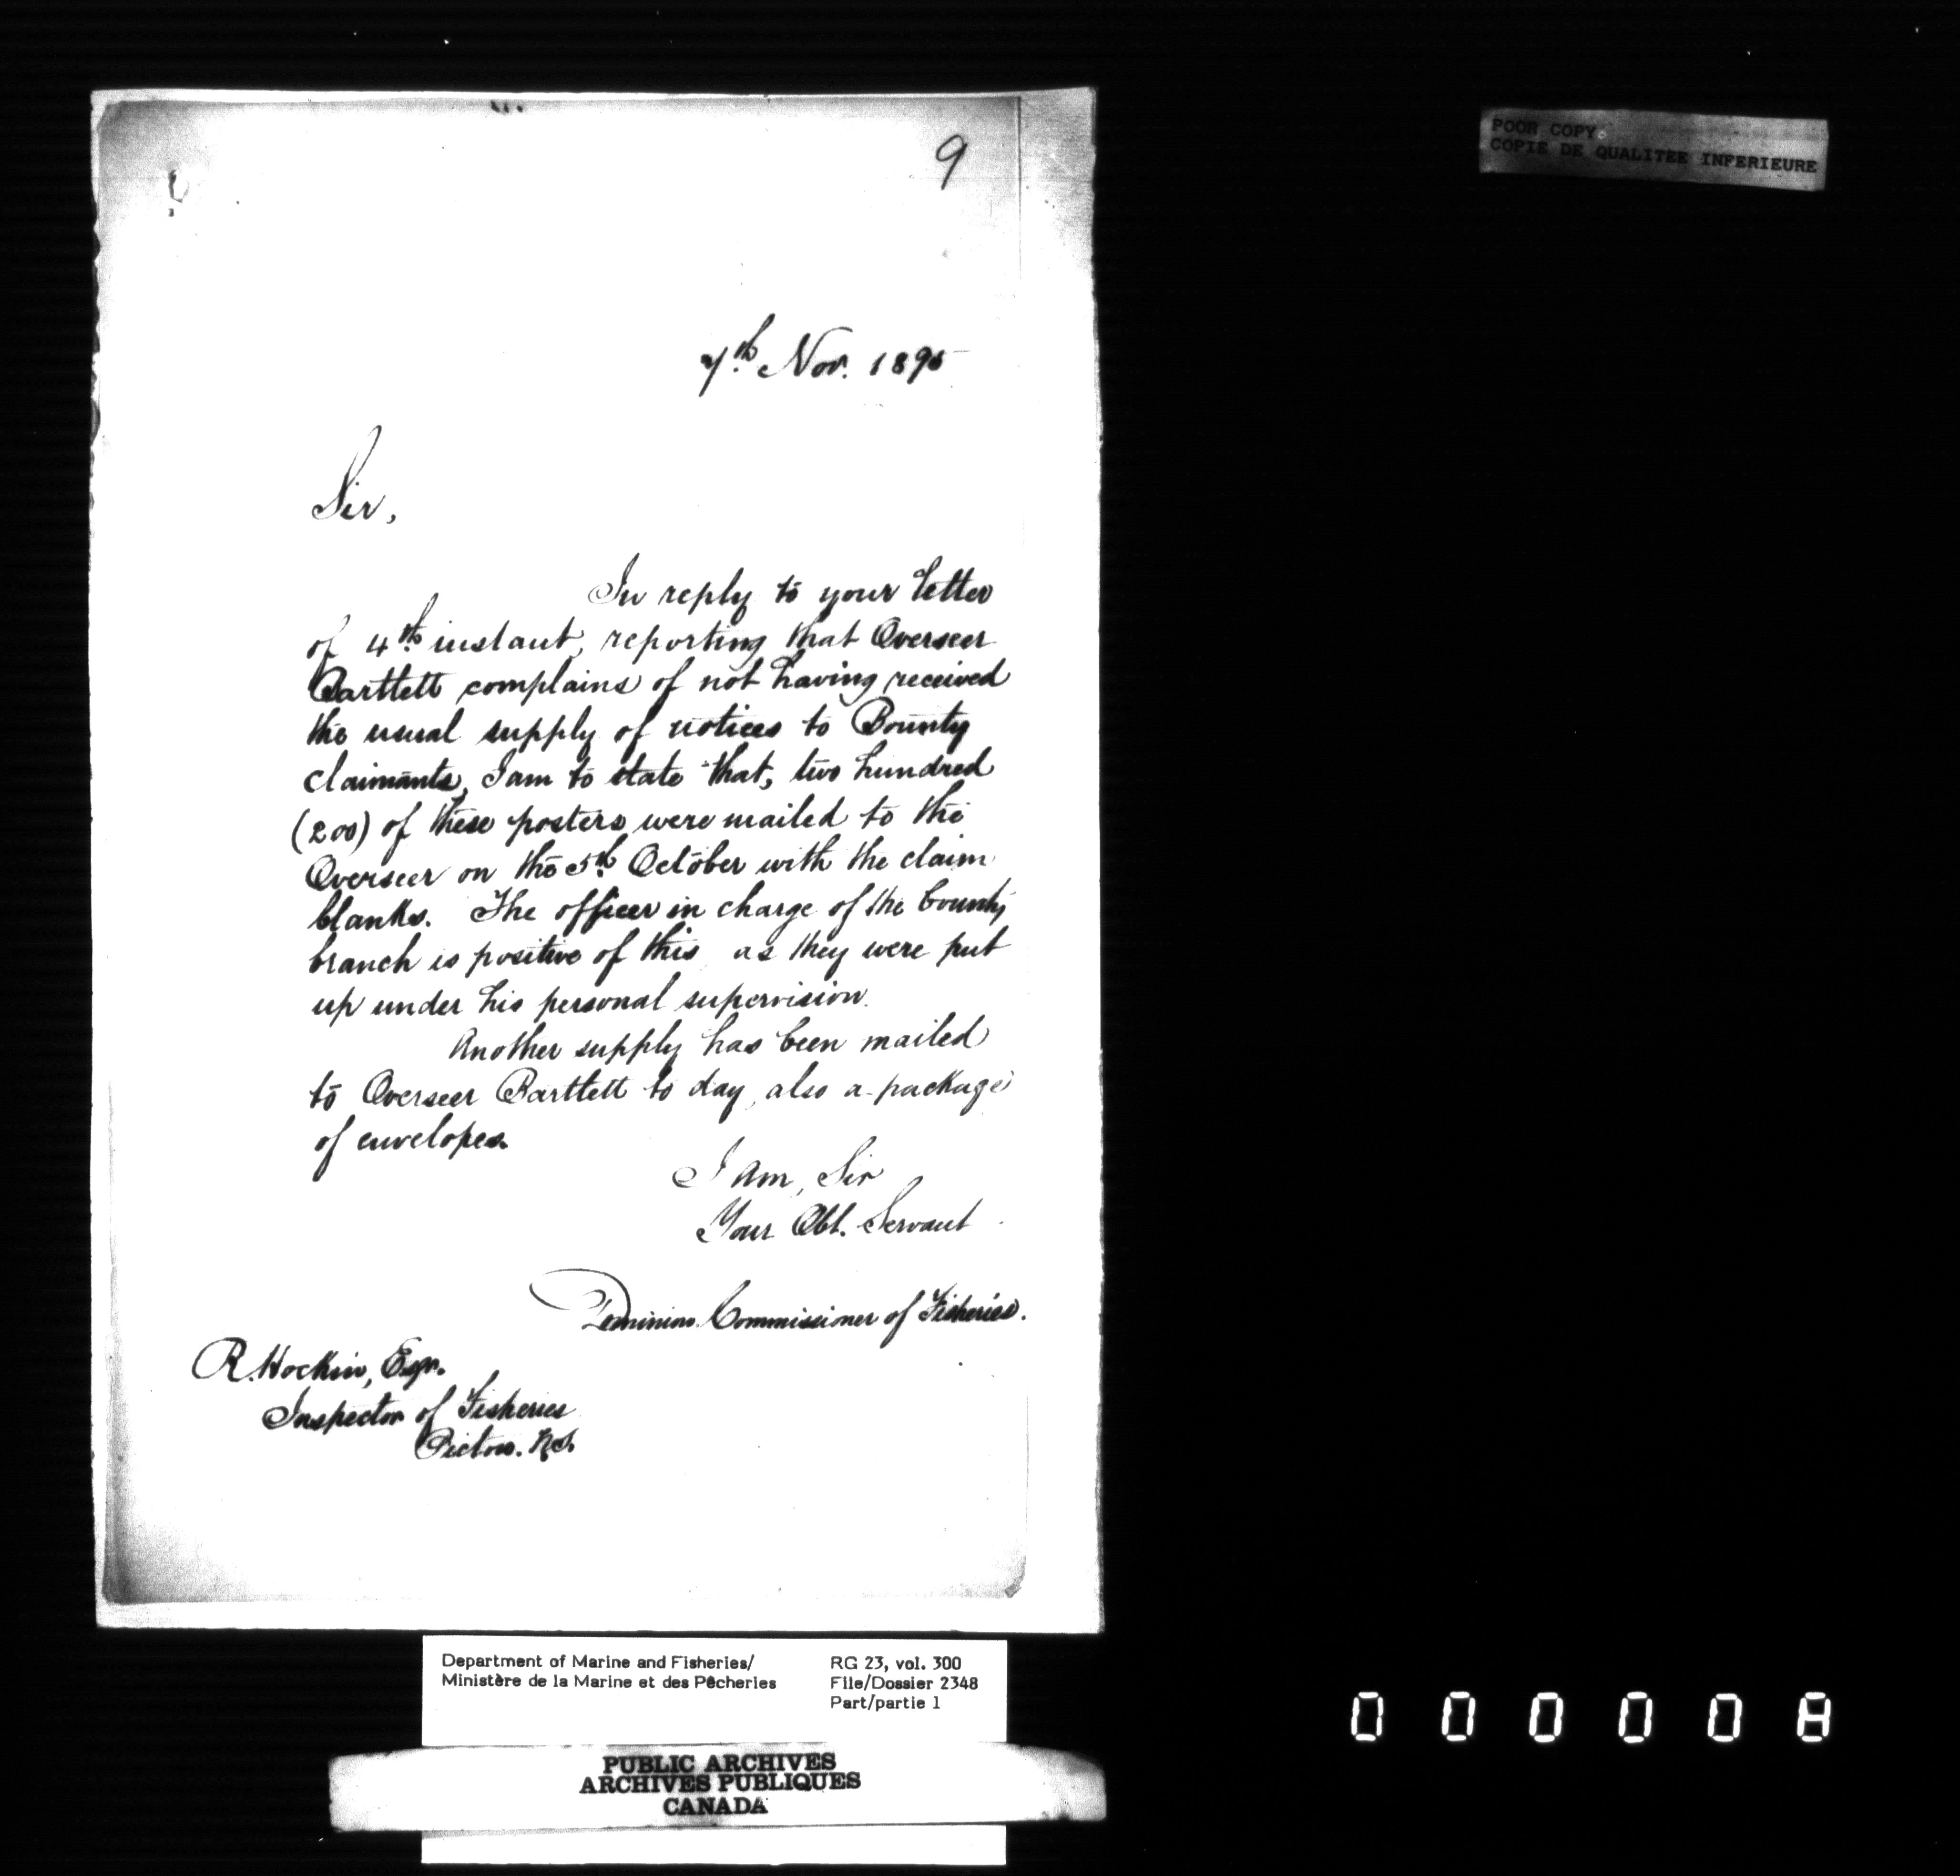 9
POOR COPY.
COPIE DE QUALITEE INFERIEURE
7th Nov. 1895
Sir,
In reply to your letter
of 4th instant, reporting that Overseer
Bartlett complains of not having received
the usual supply of notices to Bounty
claimants, I am to state that, two hundred
(200) of these posters were mailed to the
Overseer on the 5th October with the claim
blanks. The officer in charge of the bounty
branch is positive of this as they were put
up under his personal supervision.
Another supply has been mailed
to Overseer Bartlett to day, also a package
of envelopes.
I am, Sir
Your Obt. Servant
Dominion Commissioner of Fisheries.
R. Hockin, Esqr.
Inspector of Fisheries
Pictou. N.S.
Department of Marine and Fisheries/
Ministère de la Marine et des Pêcheries
RG 23, vol. 300
File/Dossier 2348
Part/partie 1
PUBLIC ARCHIVES
ARCHIVES PUBLIQUES
CANADA
000008